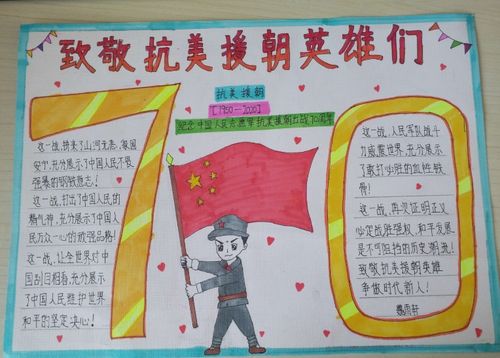 致敬抗美援朝英雄们
抗美援朝
[1950—2020]
纪念中国人民志愿军抗美援朝出战70周年
70
这一战,拼来了山河无恙,家园
安宁,充分展示了中国人不畏
强暴的钢铁意志!
这一战,打出了中国人民的
精气神,充分展示了中国人
民万众一心的顽强品格!
这一战,让全世界对中
国刮目相看,充分展示
了中国人民维护世界
和平的坚定决心!
这一战,人民军队战斗
力威震世界,充分展示
了敢打必胜的血性铁
骨!
这一战,再次证明正义
必定战胜强权,和平发展
是不可阻挡的历史潮流!
致敬抗美援朝英雄
争做时代新人!